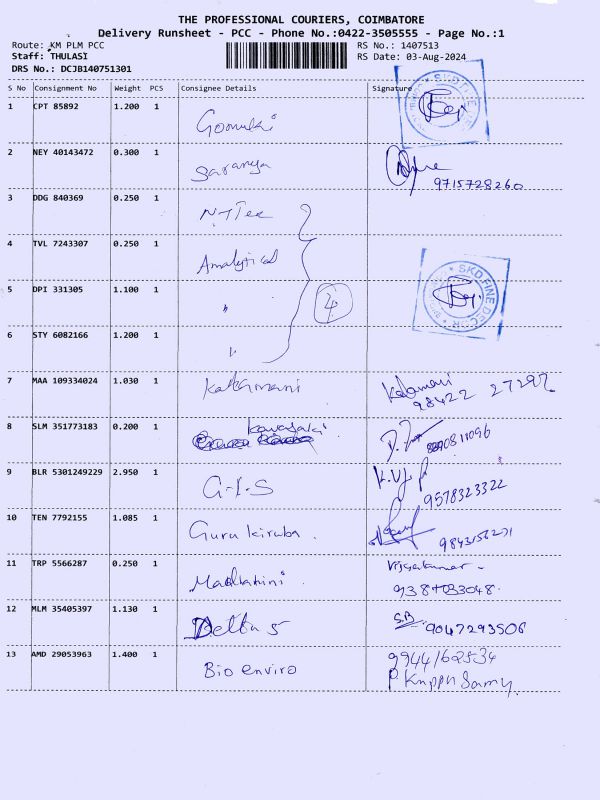 THE PROFESSIONAL COURIERS, COIMBATORE
Delivery Runsheet - PCC - Phone No.:0422-3505555 - Page No.:1
Route: KM PLM PCC RS No.: 1407513
Staff: THULASI RS Date: 03-Aug-2024
DRS No.: DCJB140751301
S No Consignment No Weight PCS Consignee Details Signature
1 CPT 85892 1.200 1 Gomuki
2 NEY 40143472 0.300 1 Saranya
9715728260
3 DDG 840369 0.250 1 N-TTec
4 TVL 7243307 0.250 1 Analytical
SKD FINE DECOR
5 DPI 331305 1.100 1 "
4
6 STY 6082166 1.200 1 "
7 MAA 109334024 1.030 1 Kalamani Kalamani
98422 27297
8 SLM 351773183 0.200 1 Kawasaki
9 BLR 5301249229 2.950 1 G-I-S
9578323322
10 TEN 7792155 1.085 1 Guru kiruba .
11 TRP 5566287 0.250 1 Vijayakumar -
12 MLM 35405397 1.130 1 Delta 5 S.B 9047293506
13 AMD 29053963 1.400 1 Bio enviro 9944162534
P Kuppu Samy.